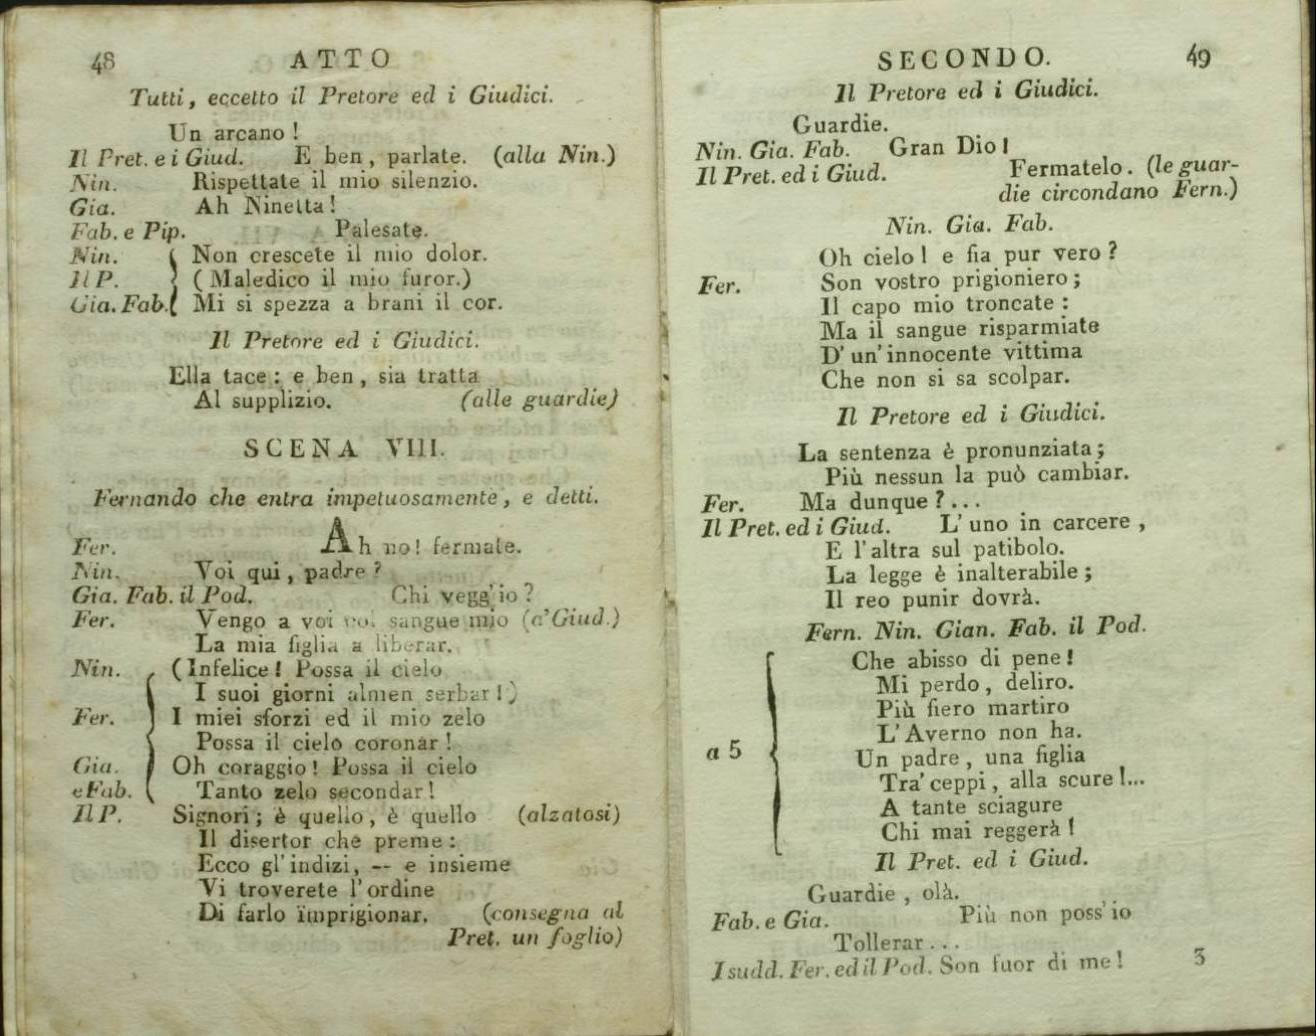 48 ATTO
Tutti, eccetto il Pretore ed i Giudici.
Un arcano!
Il Pret. e i Giud. E ben, parlate. (alla Nin.)
Nin. Rispettate il mio silenzio.
Gia. Ah Ninetta!
Fab. e Pip. Palesate.
Nin. Non crescete il mio dolor.
Il P. (Maledico il mio furor.)
Gia. Fab. Mi si spezza a brani il cor.
Il Pretore ed i Giudici.
Ella tace: e ben, sia tratta
Al supplizio. (alle guardie)
SCENA VIII.
Fernando che entra impetuosamente, e detti.
Fer. Ah no! fermate.
Nin. Voi qui, padre?
Gia. Fab. il Pod. Chi vegg'io?
Fer. Vengo a voi col sangue mio (a'Giud.)
La mia figlia a liberar.
Nin. (Infelice! Possa il cielo
I suoi giorni almen serbar!)
Fer. I miei sforzi ed il mio zelo
Possa il cielo coronar!
Gia. Oh coraggio! Possa il cielo
e Fab. Tanto zelo secondar!
Il P. Signori; è quello, è quello (alzatosi)
Il disertor che preme:
Ecco gl'indizi, -- e insieme
Vi troverete l'ordine
Di farlo imprigionar. (consegna al
Pret. un foglio)
SECONDO. 49
Il Pretore ed i Giudici.
Guardie.
Nin. Gia. Fab. Gran Dio!
Il Pret. ed i Giud. Fermatelo. (le guar-
die circondano Fern.)
Nin. Gia. Fab.
Oh cielo! e fia pur vero?
Fer. Son vostro prigioniero;
Il capo mio troncate:
Ma il sangue risparmiate
D'un'innocente vittima
Che non si sa scolpar.
Il Pretore ed i Giudici.
La sentenza è pronunziata;
Più nessun la può cambiar.
Fer. Ma dunque?...
Il Pret. ed i Giud. L'uno in carcere,
E l'altra sul patibolo.
La legge è inalterabile;
Il reo punir dovrà.
Fern. Nin. Gian. Fab. il Pod.
Che abisso di pene!
Mi perdo, deliro.
Più fiero martiro
L'Averno non ha.
a 5 Un padre, una figlia
Tra'ceppi, alla scure!...
A tante sciagure
Chi mai reggerà!
Il Pret. ed i Giud.
Guardie, olà.
Fab. e Gia. Più non poss'io
Tollerar...
I sudd. Fer. ed il Pod. Son fuor di me!
3